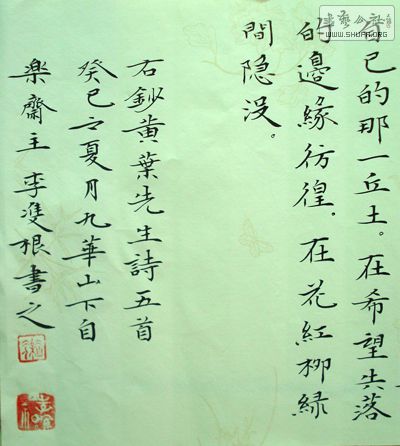 自己的那一丘土。在希望失落
的邊緣彷徨。在花紅柳緑
間隐没。
右鈔黄葉先生詩五首
癸巳之夏月九華山下自
楽齋主李雙根書之
书艺公社
WWW.SHUFA.ORG